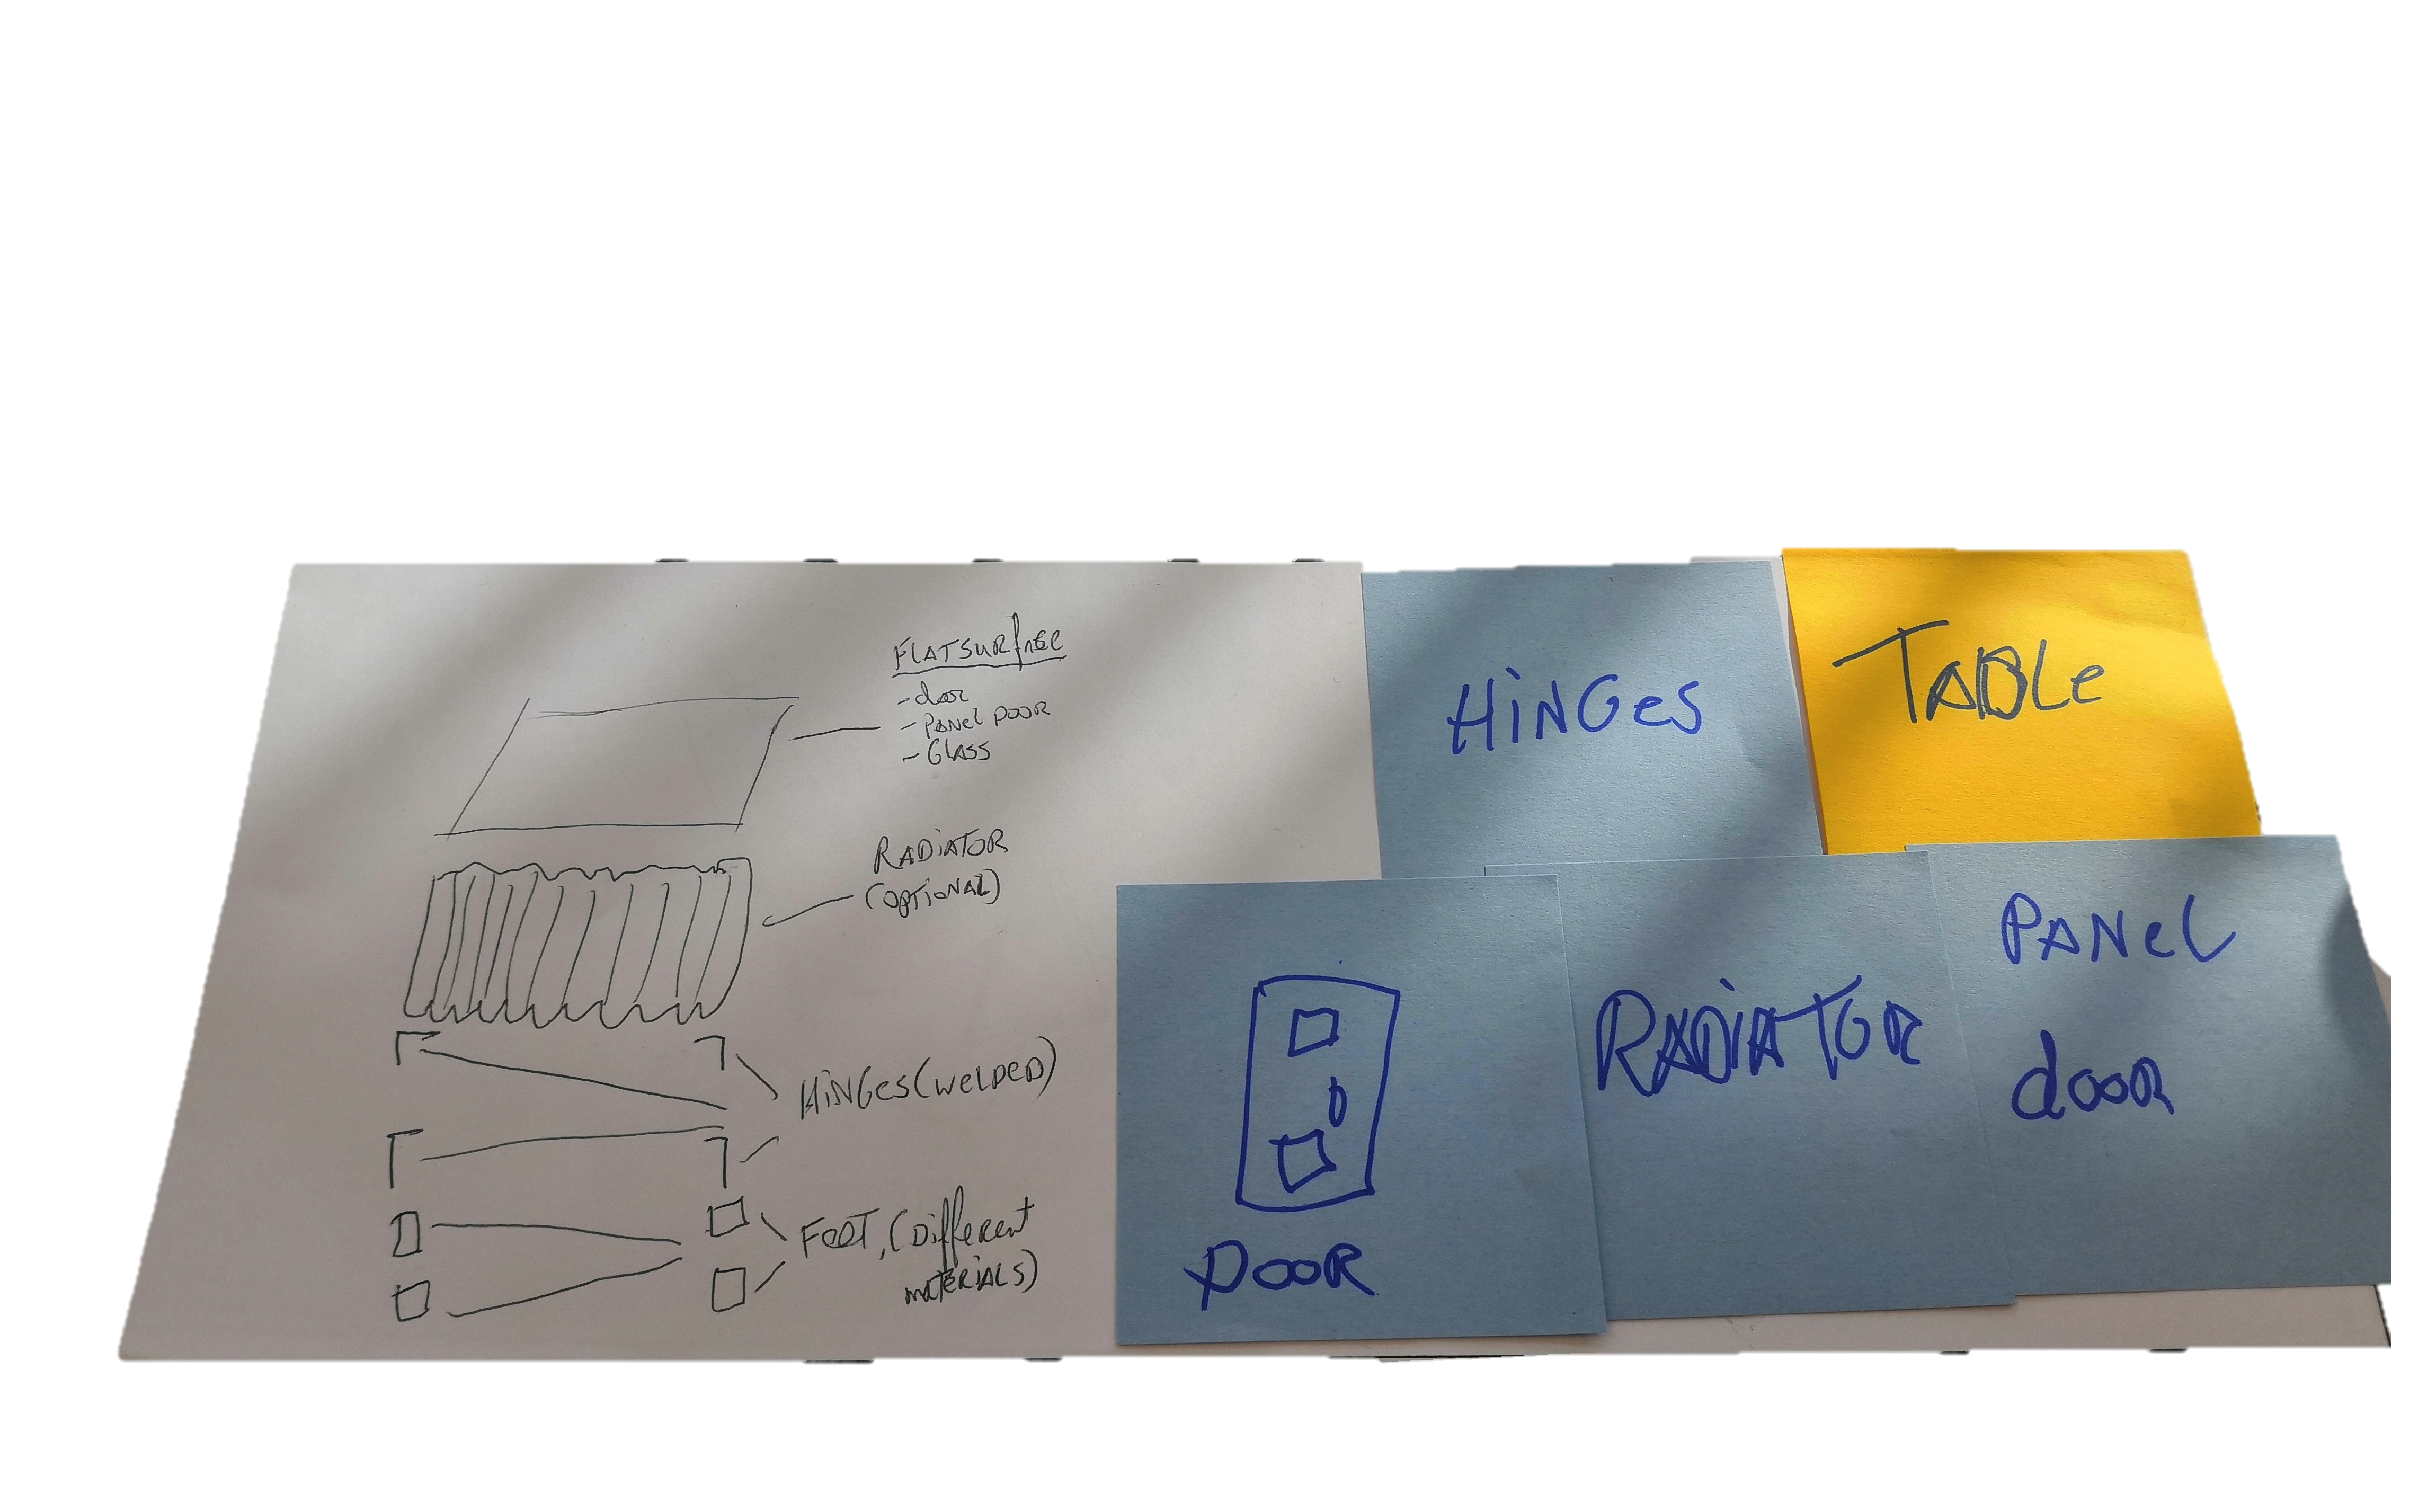 FLATSURfACE
- door
- PANel DOOR
- GLASS
RADiATOR
(OPTIONAL)
HiNGes (WELDED)
FeeT, (Different
mATERIALS)
HiNGes
TABLe
DOOR
RADiATOR
PANeL
dooR